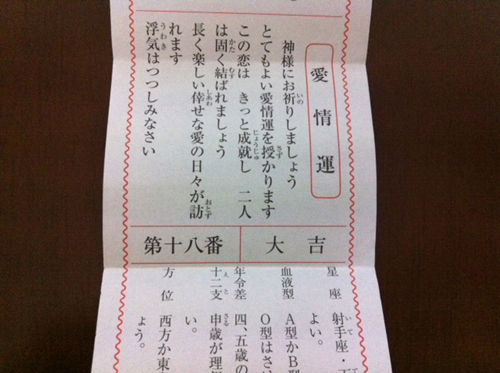 愛情運
神様にお祈りしましょう
とてもよい愛情運を授かります
この恋は きっと成就し 二人
は固く結ばれましょう
長く楽しい倖せな愛の日々が訪
れます
浮気はつつしみなさい
大吉
第十八番
星座 射手座・
よい。
血液型 A型かB型
O型はさけ
年令差 四、五歳の
十二支 申歳が理
い。
方位 西方か東
ょう。